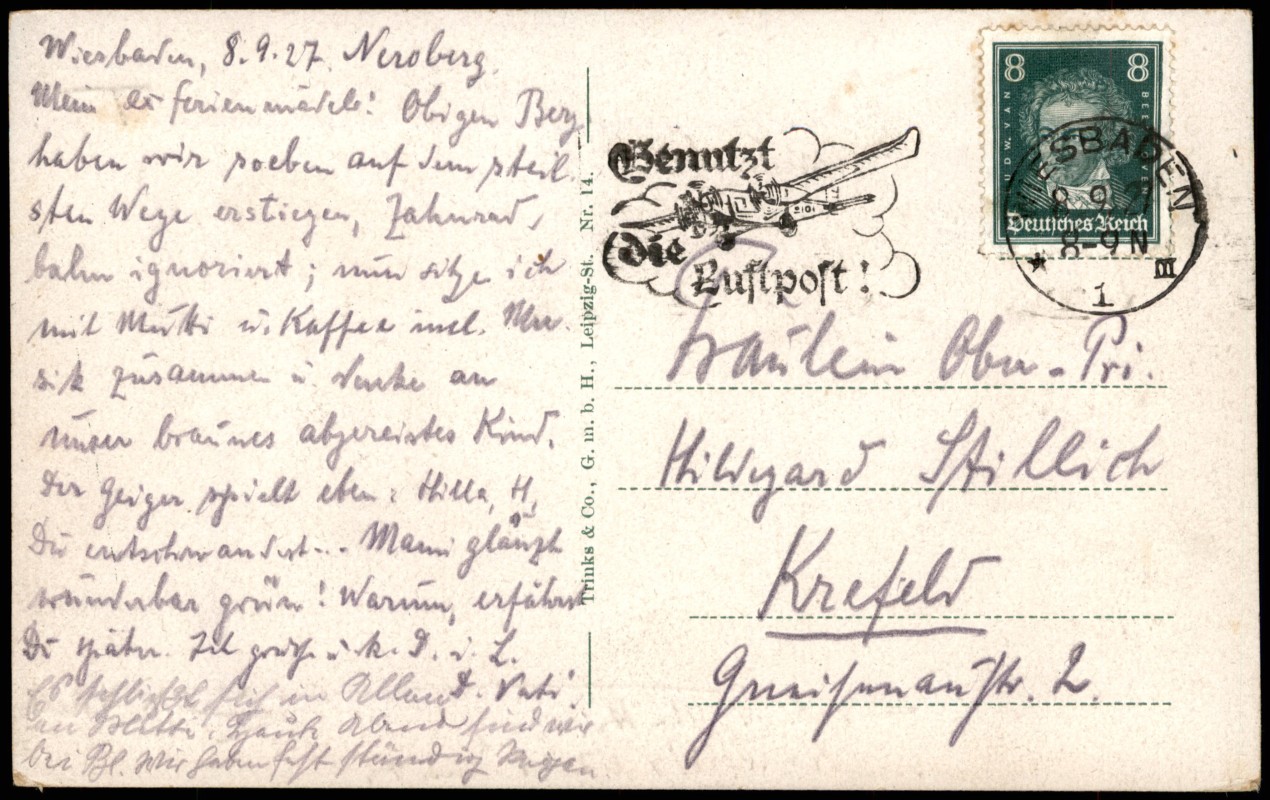 Wiesbaden, 8.9.27. Neroberg.
Mein ex ferienmädele! Obigen Berg
haben wir soeben auf dem steil
sten Wege erstiegen, Zahnrad,
bahn ignoriert; nun sitze ich
mit Mutti u. Kaffee incl. Mu-
sik zusammen u denke an
unser braunes abgereistes Kind.
Der Geiger spielt eben: Hilla, H,
Du entschwandest... Mami glänzt
wunderbar grün! Warum, erfährst
Du später. Ich grüße u. k. D. i. L.
D. Vati.
Es schließt sich in Allem
an Mutti. Abend sind wir
bei Bl. Wir haben fast ständig Regen
Trinks & Co., G. m. b. H., Leipzig-St. Nr. 14.
Benutzt
die
Luftpost!
8 8
LUDW. VAN BEETHOVEN
Deutsches Reich
WIESBADEN
8.9.27
8-9 N
* 1 III
Fräulein Ober-Pri.
Hildegard Stillich
Krefeld
Gneisenaustr. 2.